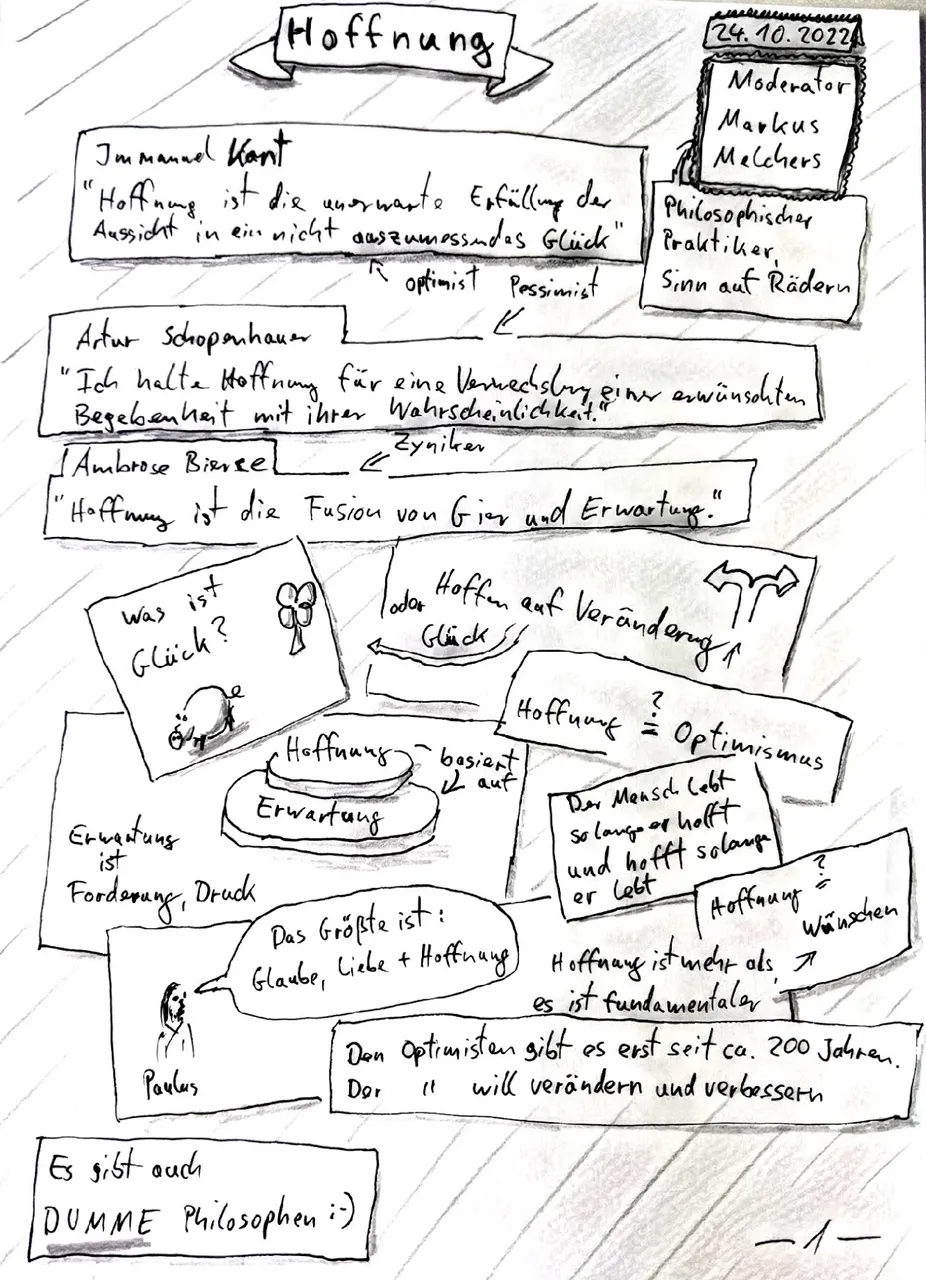 Hoffnung
24.10.2022
Moderator
Markus
Melchers
Philosophischer
Praktiker,
Sinn auf Rädern
Immanuel Kant
"Hoffnung ist die unerwarte Erfüllung der
Aussicht in ein nicht auszumessendas Glück"
optimist Pessimist
Artur Schopenhauer
"Ich halte Hoffnung für eine Verwechslung einer erwünschten
Begebenheit mit ihrer Wahrscheinlichkeit."
Zyniker
Ambrose Bierse
"Hoffnung ist die Fusion von Gier und Erwartung."
Was ist
Glück?
Hoffen auf Veränderung
oder
Glück
Hoffnung ?= Optimismus
Hoffnung
basiert
auf
Erwartung
Erwartung
ist
Forderung, Druck
Der Mensch lebt
solange er hofft
und hofft solange
er lebt
Hoffnung ?=
Wünschen
Das Größte ist:
Glaube, Liebe + Hoffnung
Paulus
Hoffnung ist mehr als,
es ist fundamentaler
Den Optimisten gibt es erst seit ca. 200 Jahren.
Der " will verändern und verbessern
Es gibt auch
DUMME Philosophen ;-)
-1-